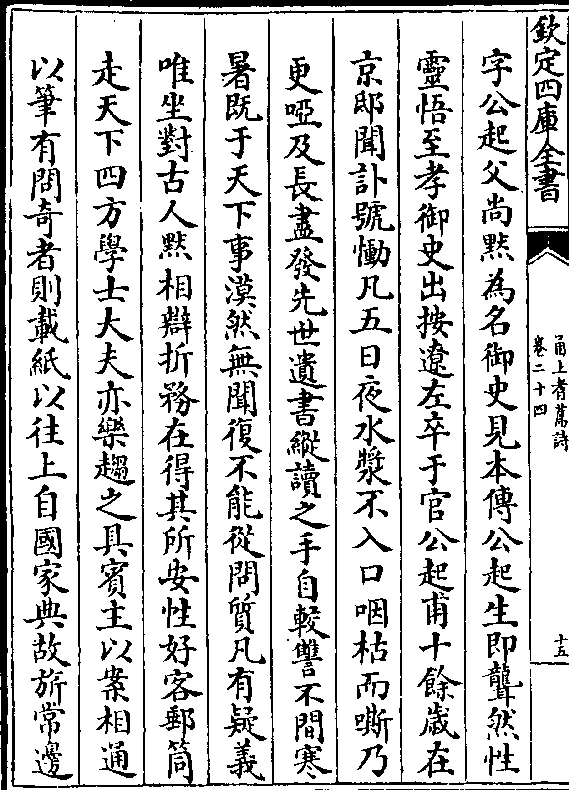 欽定四庫全書
甬上耆舊詩
卷二十四
十五
字公起父尚默為名御史見本傳公起生即聾然性
靈悟至孝御史出按遼左卒于官公起甫十餘歲在
京邸聞訃號慟凡五日夜水漿不入口咽枯而嘶乃
更啞及長盡發先世遺書縱讀之手自較讐不間寒
暑既于天下事漠然無聞復不能從問質凡有疑義
唯坐對古人黙相辯折務在得其所安性好客郵筒
走天下四方學士大夫亦樂趨之具賓主以案相通
以筆有問奇者則載紙以往上自國家典故旂常邊